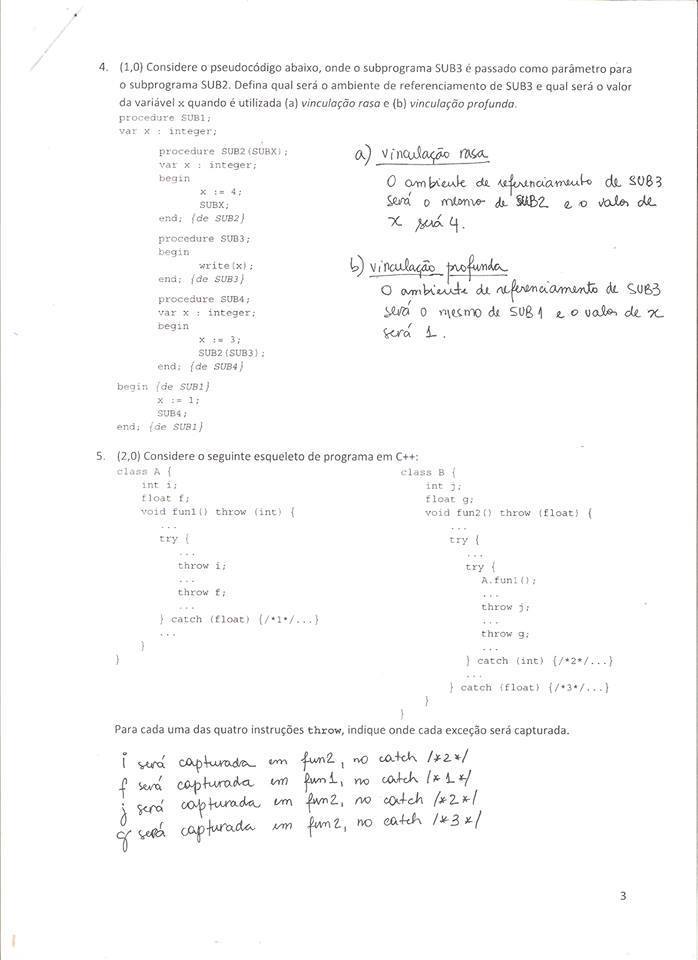 4. (1,0) Considere o pseudocódigo abaixo, onde o subprograma SUB3 é passado como parâmetro para
o subprograma SUB2. Defina qual será o ambiente de referenciamento de SUB3 e qual será o valor
da variável x quando é utilizada (a) vinculação rasa e (b) vinculação profunda.
procedure SUB1;
var x : integer;
procedure SUB2(SUBX);
var x : integer;
begin
x := 4;
SUBX;
end; {de SUB2}
procedure SUB3;
begin
write(x);
end; {de SUB3}
procedure SUB4;
var x : integer;
begin
x := 3;
SUB2(SUB3);
end; {de SUB4}
begin {de SUB1}
x := 1;
SUB4;
end; {de SUB1}
a) vinculação rasa
O ambiente de referenciamento de SUB3
será o mesmo de SUB2 e o valor de
x será 4.
b) vinculação profunda
O ambiente de referenciamento de SUB3
será o mesmo de SUB1 e o valor de x
será 1.
5. (2,0) Considere o seguinte esqueleto de programa em C++:
class A {
int i;
float f;
void fun1() throw (int) {
...
try {
...
throw i;
...
throw f;
...
} catch (float) {/*1*/...}
...
}
}
class B {
int j;
float g;
void fun2() throw (float) {
...
try {
...
try {
A.fun1();
...
throw j;
...
throw g;
...
} catch (int) {/*2*/...}
...
} catch (float) {/*3*/...}
}
}
Para cada uma das quatro instruções throw, indique onde cada exceção será capturada.
i será capturada em fun2, no catch /*2*/
f será capturada em fun1, no catch /*1*/
j será capturada em fun2, no catch /*2*/
g será capturada em fun2, no catch /*3*/
3